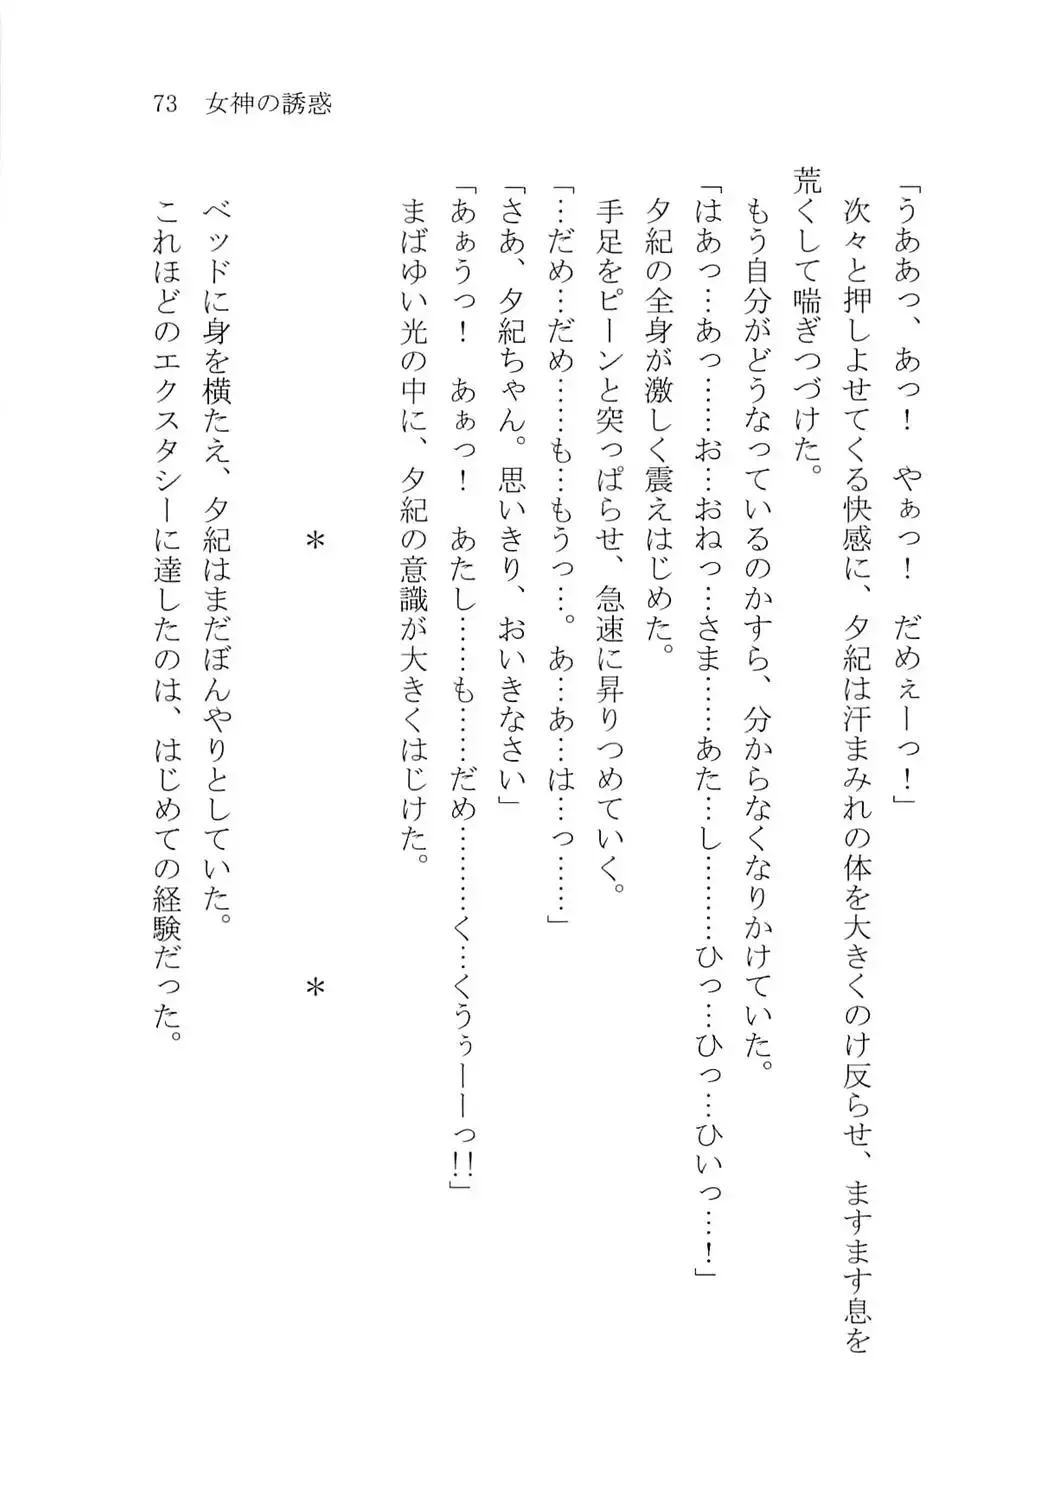 73 女神の誘惑
「うああっ、あっ！　やぁっ！　だめぇーっ！」
次々と押しよせてくる快感に、夕紀は汗まみれの体を大きくのけ反らせ、ますます息を
荒くして喘ぎつづけた。
もう自分がどうなっているのかすら、分からなくなりかけていた。
「はあっ…あっ……お…おねっ…さま……あた…し………ひっ…ひっ…ひいっ…！」
夕紀の全身が激しく震えはじめた。
手足をピーンと突っぱらせ、急速に昇りつめていく。
「…だめ…だめ……も…もうっ…。あ…あ…は…っ……」
「さあ、夕紀ちゃん。思いきり、おいきなさい」
「あぁうっ！　あぁっ！　あたし……も……だめ………く…くうぅーーっ!!」
まばゆい光の中に、夕紀の意識が大きくはじけた。
＊　　　＊
ベッドに身を横たえ、夕紀はまだぼんやりとしていた。
これほどのエクスタシーに達したのは、はじめての経験だった。